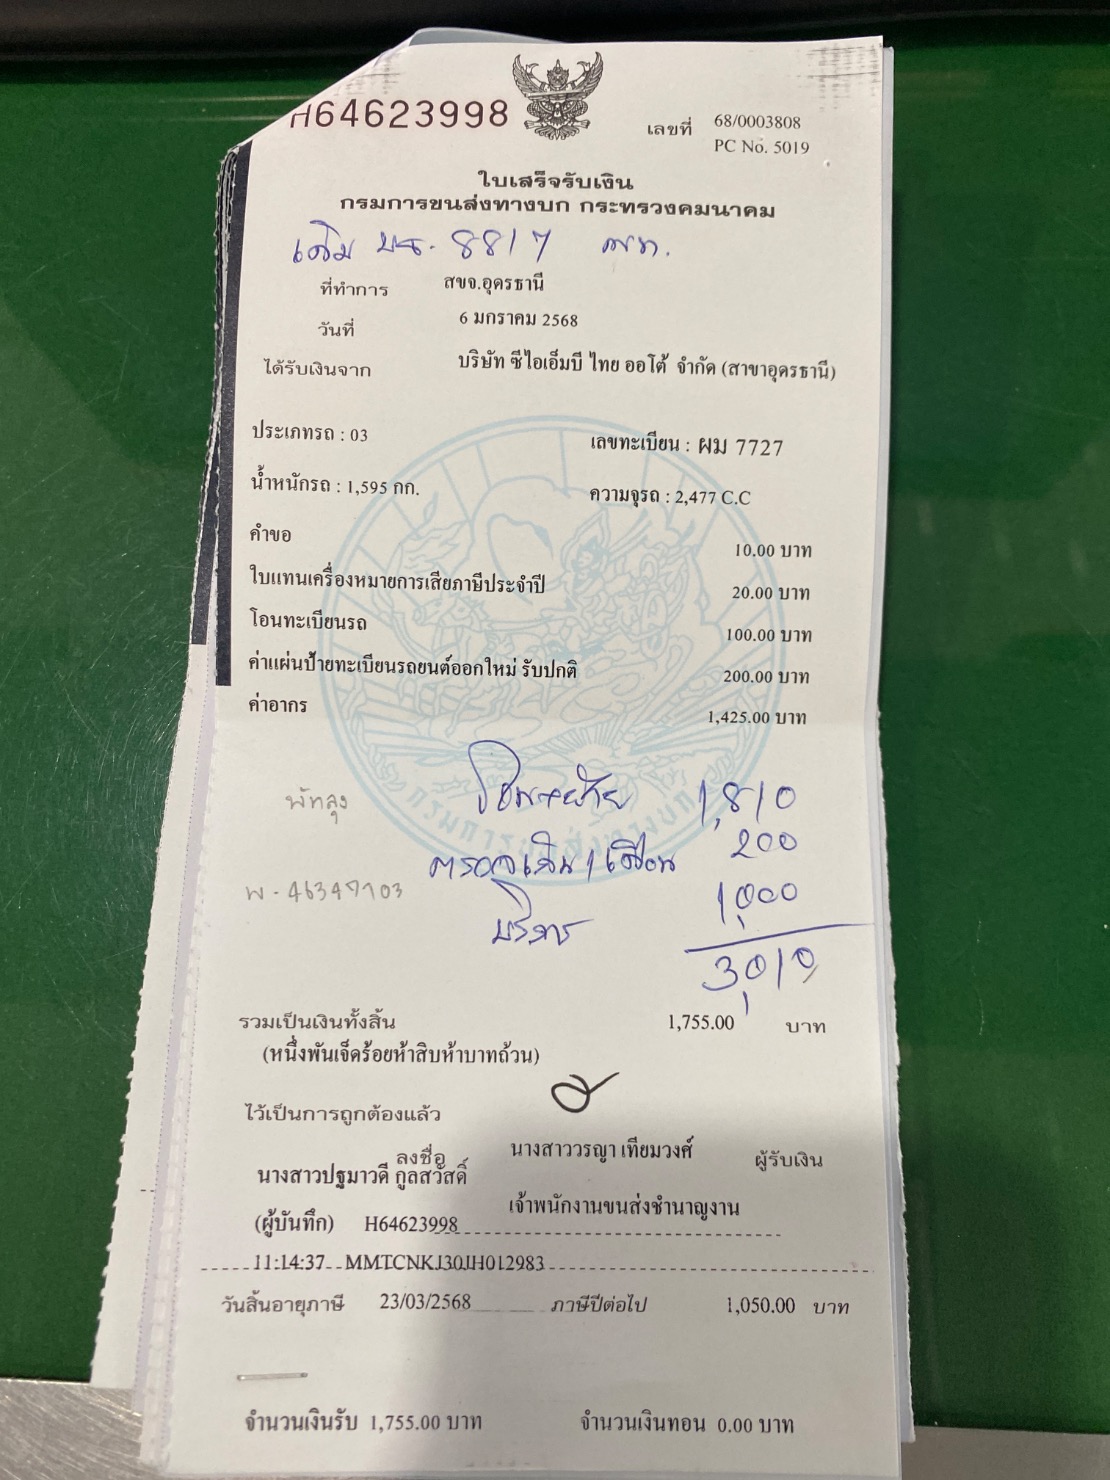 H64623998
เลขที่ 68/0003808
PC No. 5019
ใบเสร็จรับเงิน
กรมการขนส่งทางบก กระทรวงคมนาคม
เดิม บธ. 8817 พท.
ที่ทำการ สขจ.อุดรธานี
วันที่ 6 มกราคม 2568
ได้รับเงินจาก บริษัท ซีไอเอ็มบี ไทย ออโต้ จำกัด (สาขาอุดรธานี)
ประเภทรถ : 03 เลขทะเบียน : ผม 7727
น้ำหนักรถ : 1,595 กก. ความจุรถ : 2,477 C.C
คำขอ 10.00 บาท
ใบแทนเครื่องหมายการเสียภาษีประจำปี 20.00 บาท
โอนทะเบียนรถ 100.00 บาท
ค่าแผ่นป้ายทะเบียนรถยนต์ออกใหม่ รับปกติ 200.00 บาท
ค่าอากร 1,425.00 บาท
กรมการขนส่งทางบก
พัทลุง 1,810
200
พ - 46347103 1,000
บริการ
3,010
รวมเป็นเงินทั้งสิ้น 1,755.00 บาท
(หนึ่งพันเจ็ดร้อยห้าสิบห้าบาทถ้วน)
ไว้เป็นการถูกต้องแล้ว
ลงชื่อ นางสาววรญา เทียมวงศ์ ผู้รับเงิน
นางสาวปฐมาวดี กูลสวัสดิ์
(ผู้บันทึก) H64623998 เจ้าพนักงานขนส่งชำนาญงาน
11:14:37 MMTCNKJ30JH012983
วันสิ้นอายุภาษี 23/03/2568 ภาษีปีต่อไป 1,050.00 บาท
จำนวนเงินรับ 1,755.00 บาท จำนวนเงินทอน 0.00 บาท